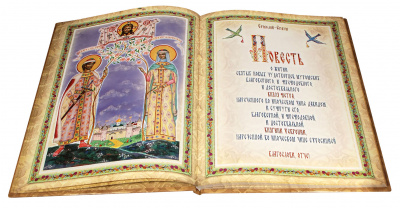 Повесть
о житии
святых новых чудотворцев муромских
благоверного и преподобного
и достохвального
князя Петра
нареченного во иноческом чине Давидом
и супруги его
благоверной и преподобной
и достохвальной
княгини Февронии,
нареченной во иноческом чине Ефросинией
Благослови, отче!